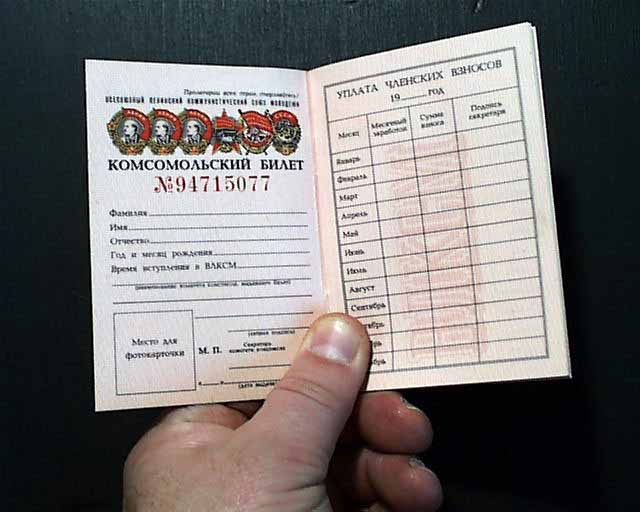 Пролетарии всех стран, соединяйтесь!
ВСЕСОЮЗНЫЙ ЛЕНИНСКИЙ КОММУНИСТИЧЕСКИЙ СОЮЗ МОЛОДЕЖИ
КОМСОМОЛЬСКИЙ БИЛЕТ
№94715077
Фамилия
Имя
Отчество
Год и месяц рождения
Время вступления в ВЛКСМ
(наименование комитета комсомола, выдавшего билет)
(личная подпись)
Место для
фотокарточки
М. П.
Секретарь
комитета комсомола
(дата выдачи
УПЛАТА ЧЛЕНСКИХ ВЗНОСОВ
19 ГОД
Месяц
Месячный
заработок
Сумма
взноса
Подпись
секретаря
Январь
Февраль
Март
Апрель
Май
Июнь
Июль
Август
Сентябрь